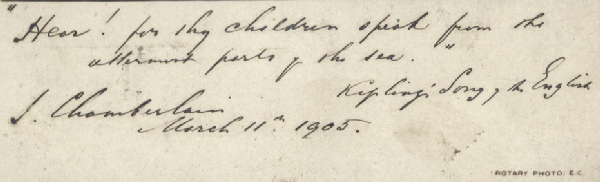 "Hear! for thy children speak from the
uttermost parts of the sea."
Kipling's Song of the English
J. Chamberlain
March 11th 1905.
ROTARY PHOTO. E.C.